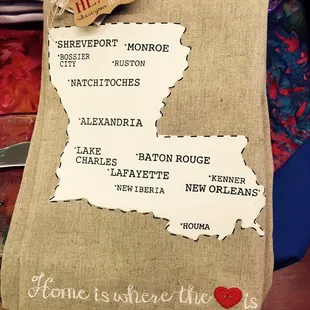 SHREVEPORT
MONROE
BOSSIER
CITY
RUSTON
NATCHITOCHES
ALEXANDRIA
LAKE
CHARLES
BATON ROUGE
LAFAYETTE
KENNER
NEW IBERIA
NEW ORLEANS
HOUMA
Home is where the is